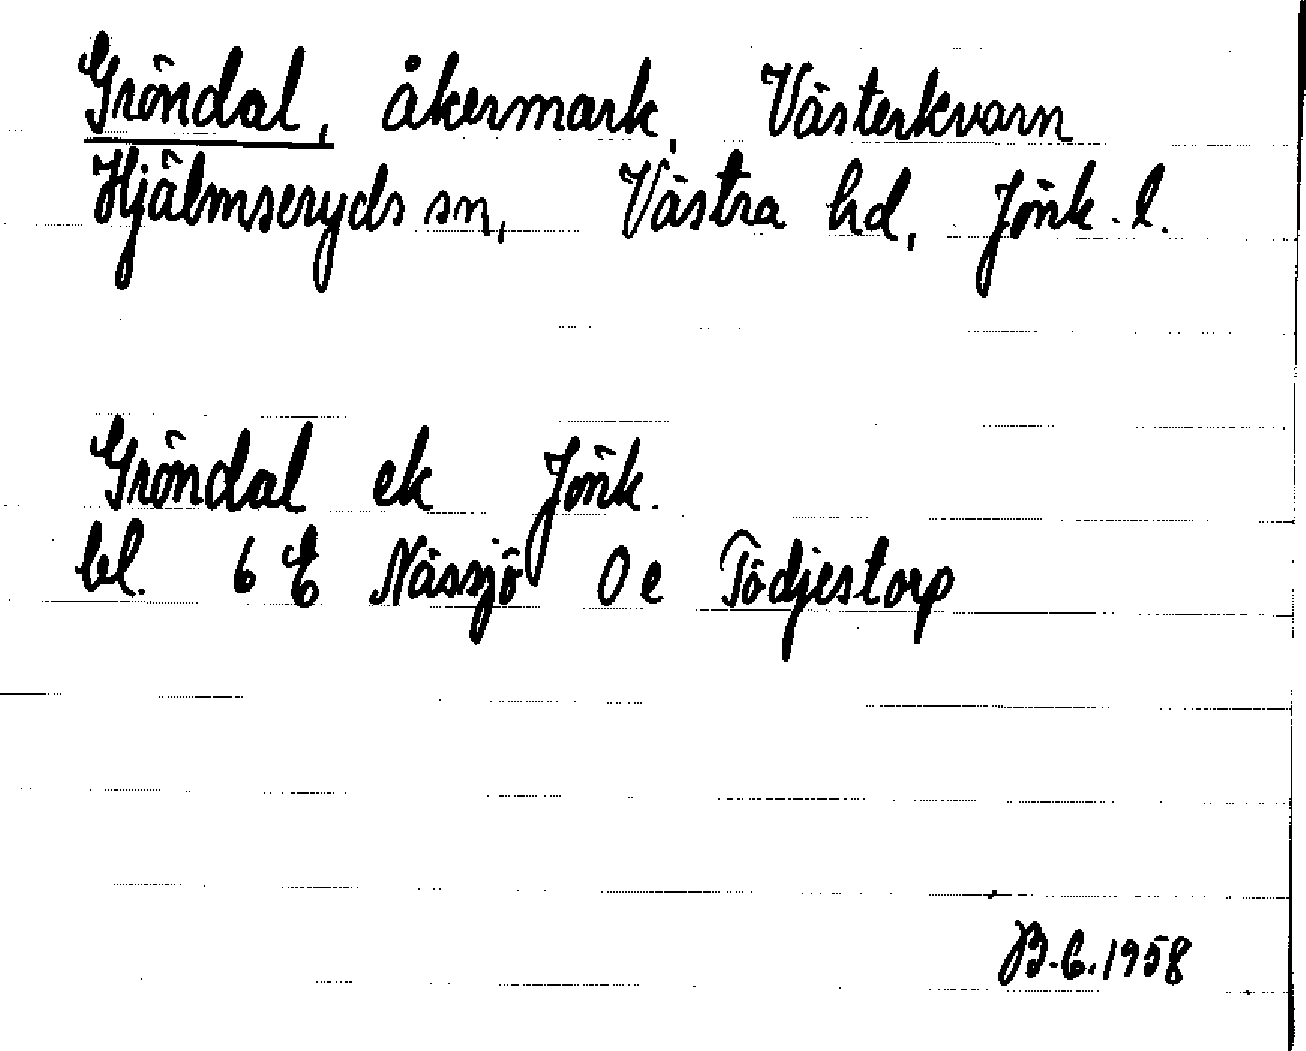 Gröndal, åkermark, Västerkvarn
Hjälmseryds sn, Västra hd, Jönk. l.
Gröndal ek Jönk.
bl. 6 E Nässjö 0 e Tödjestorp
B.C. 1958